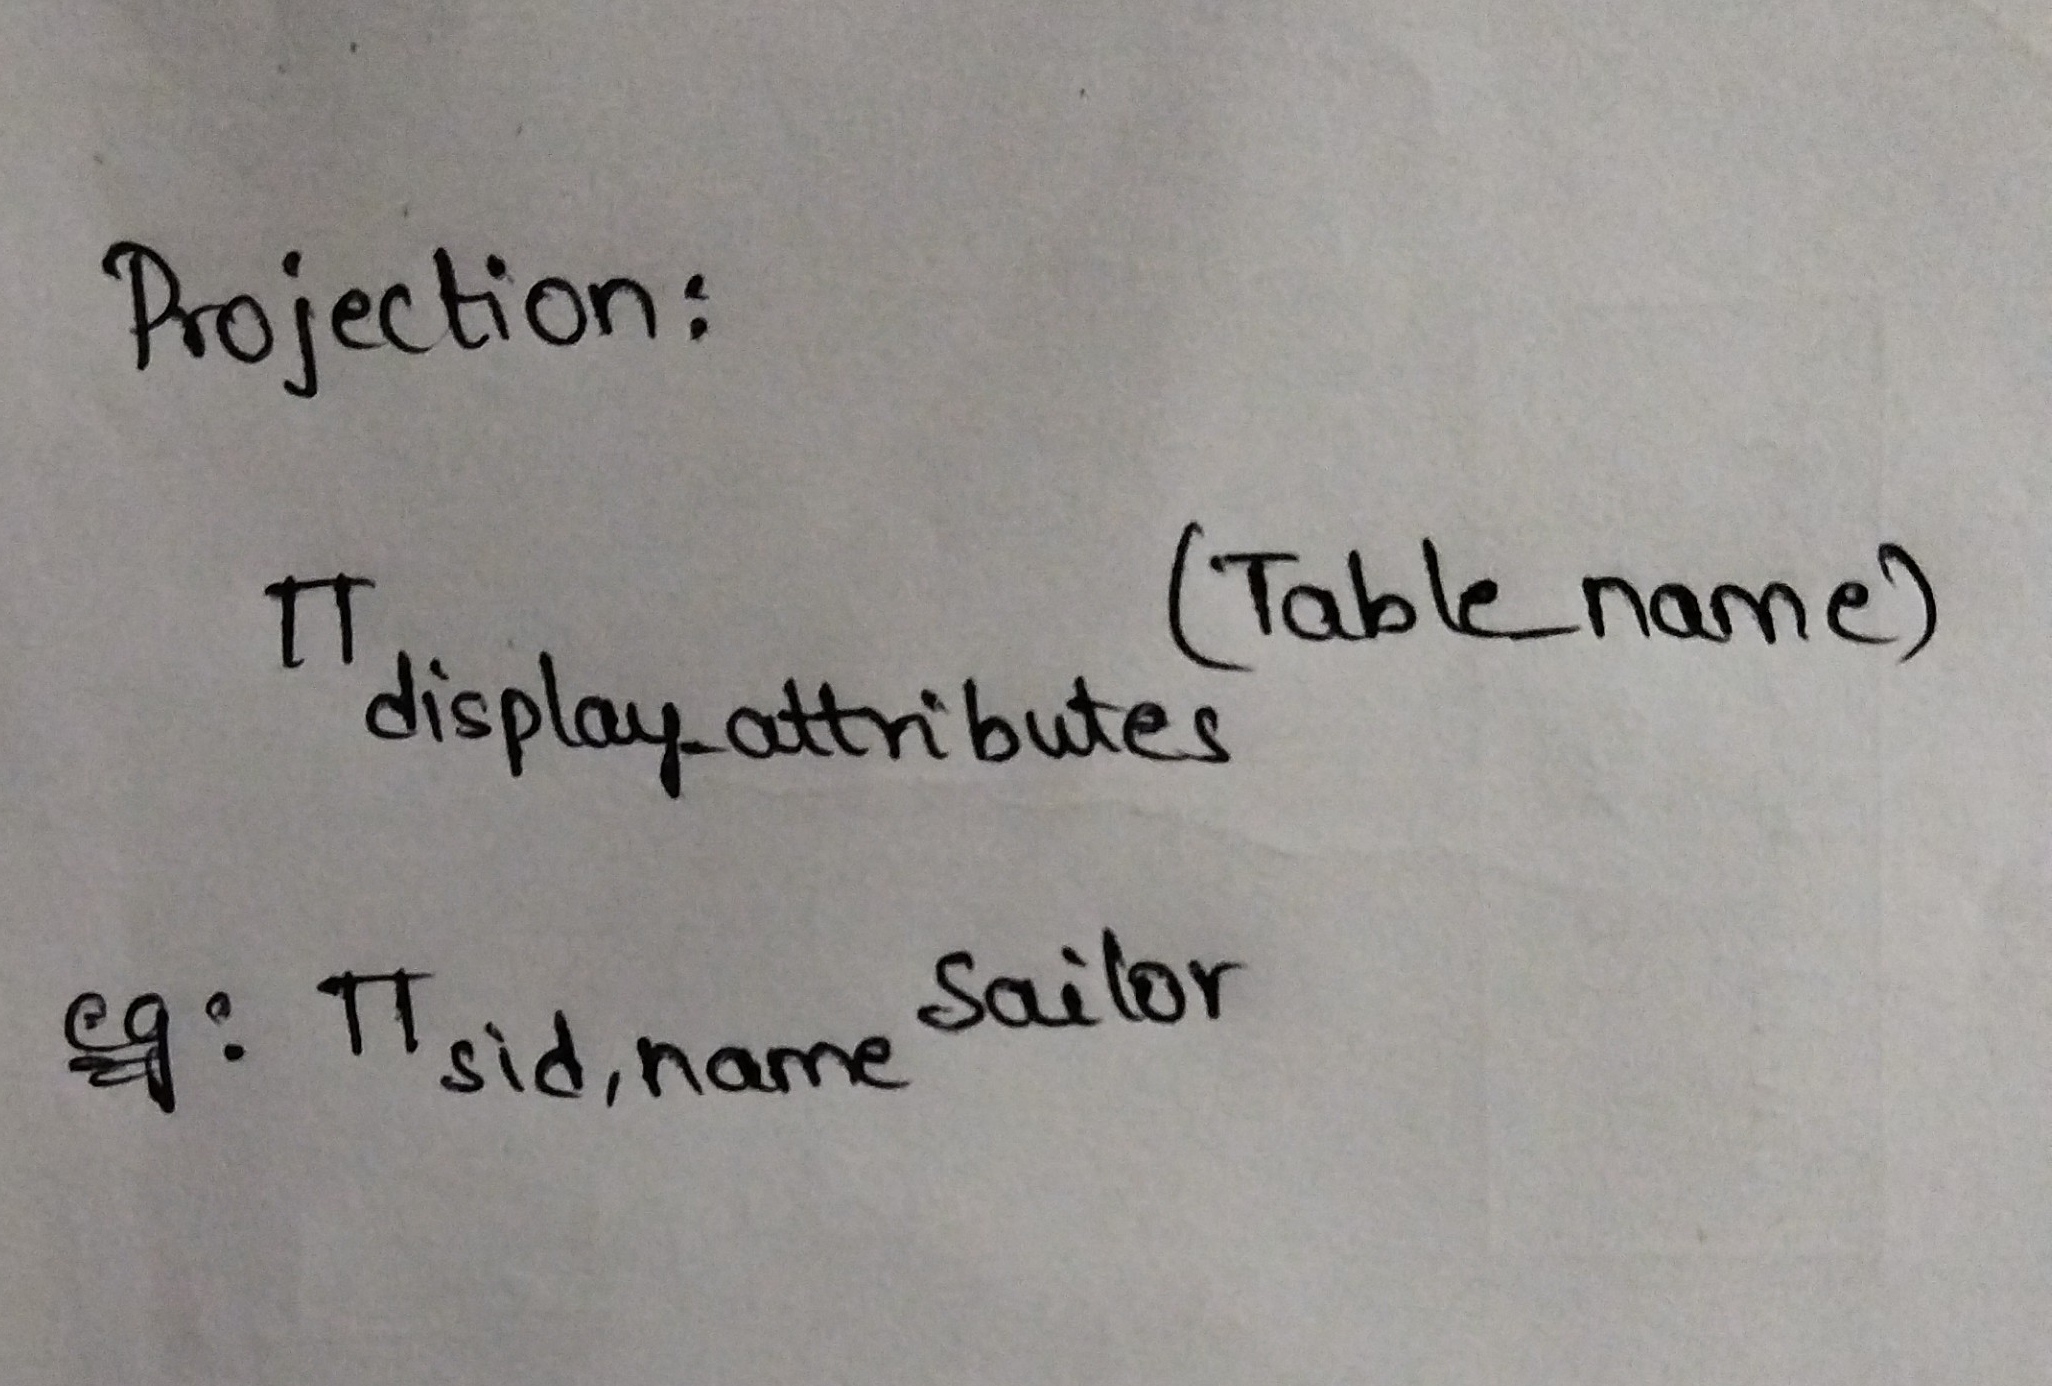 Projection:
π display_attributes (Table_name)
eg: π sid, name Sailor